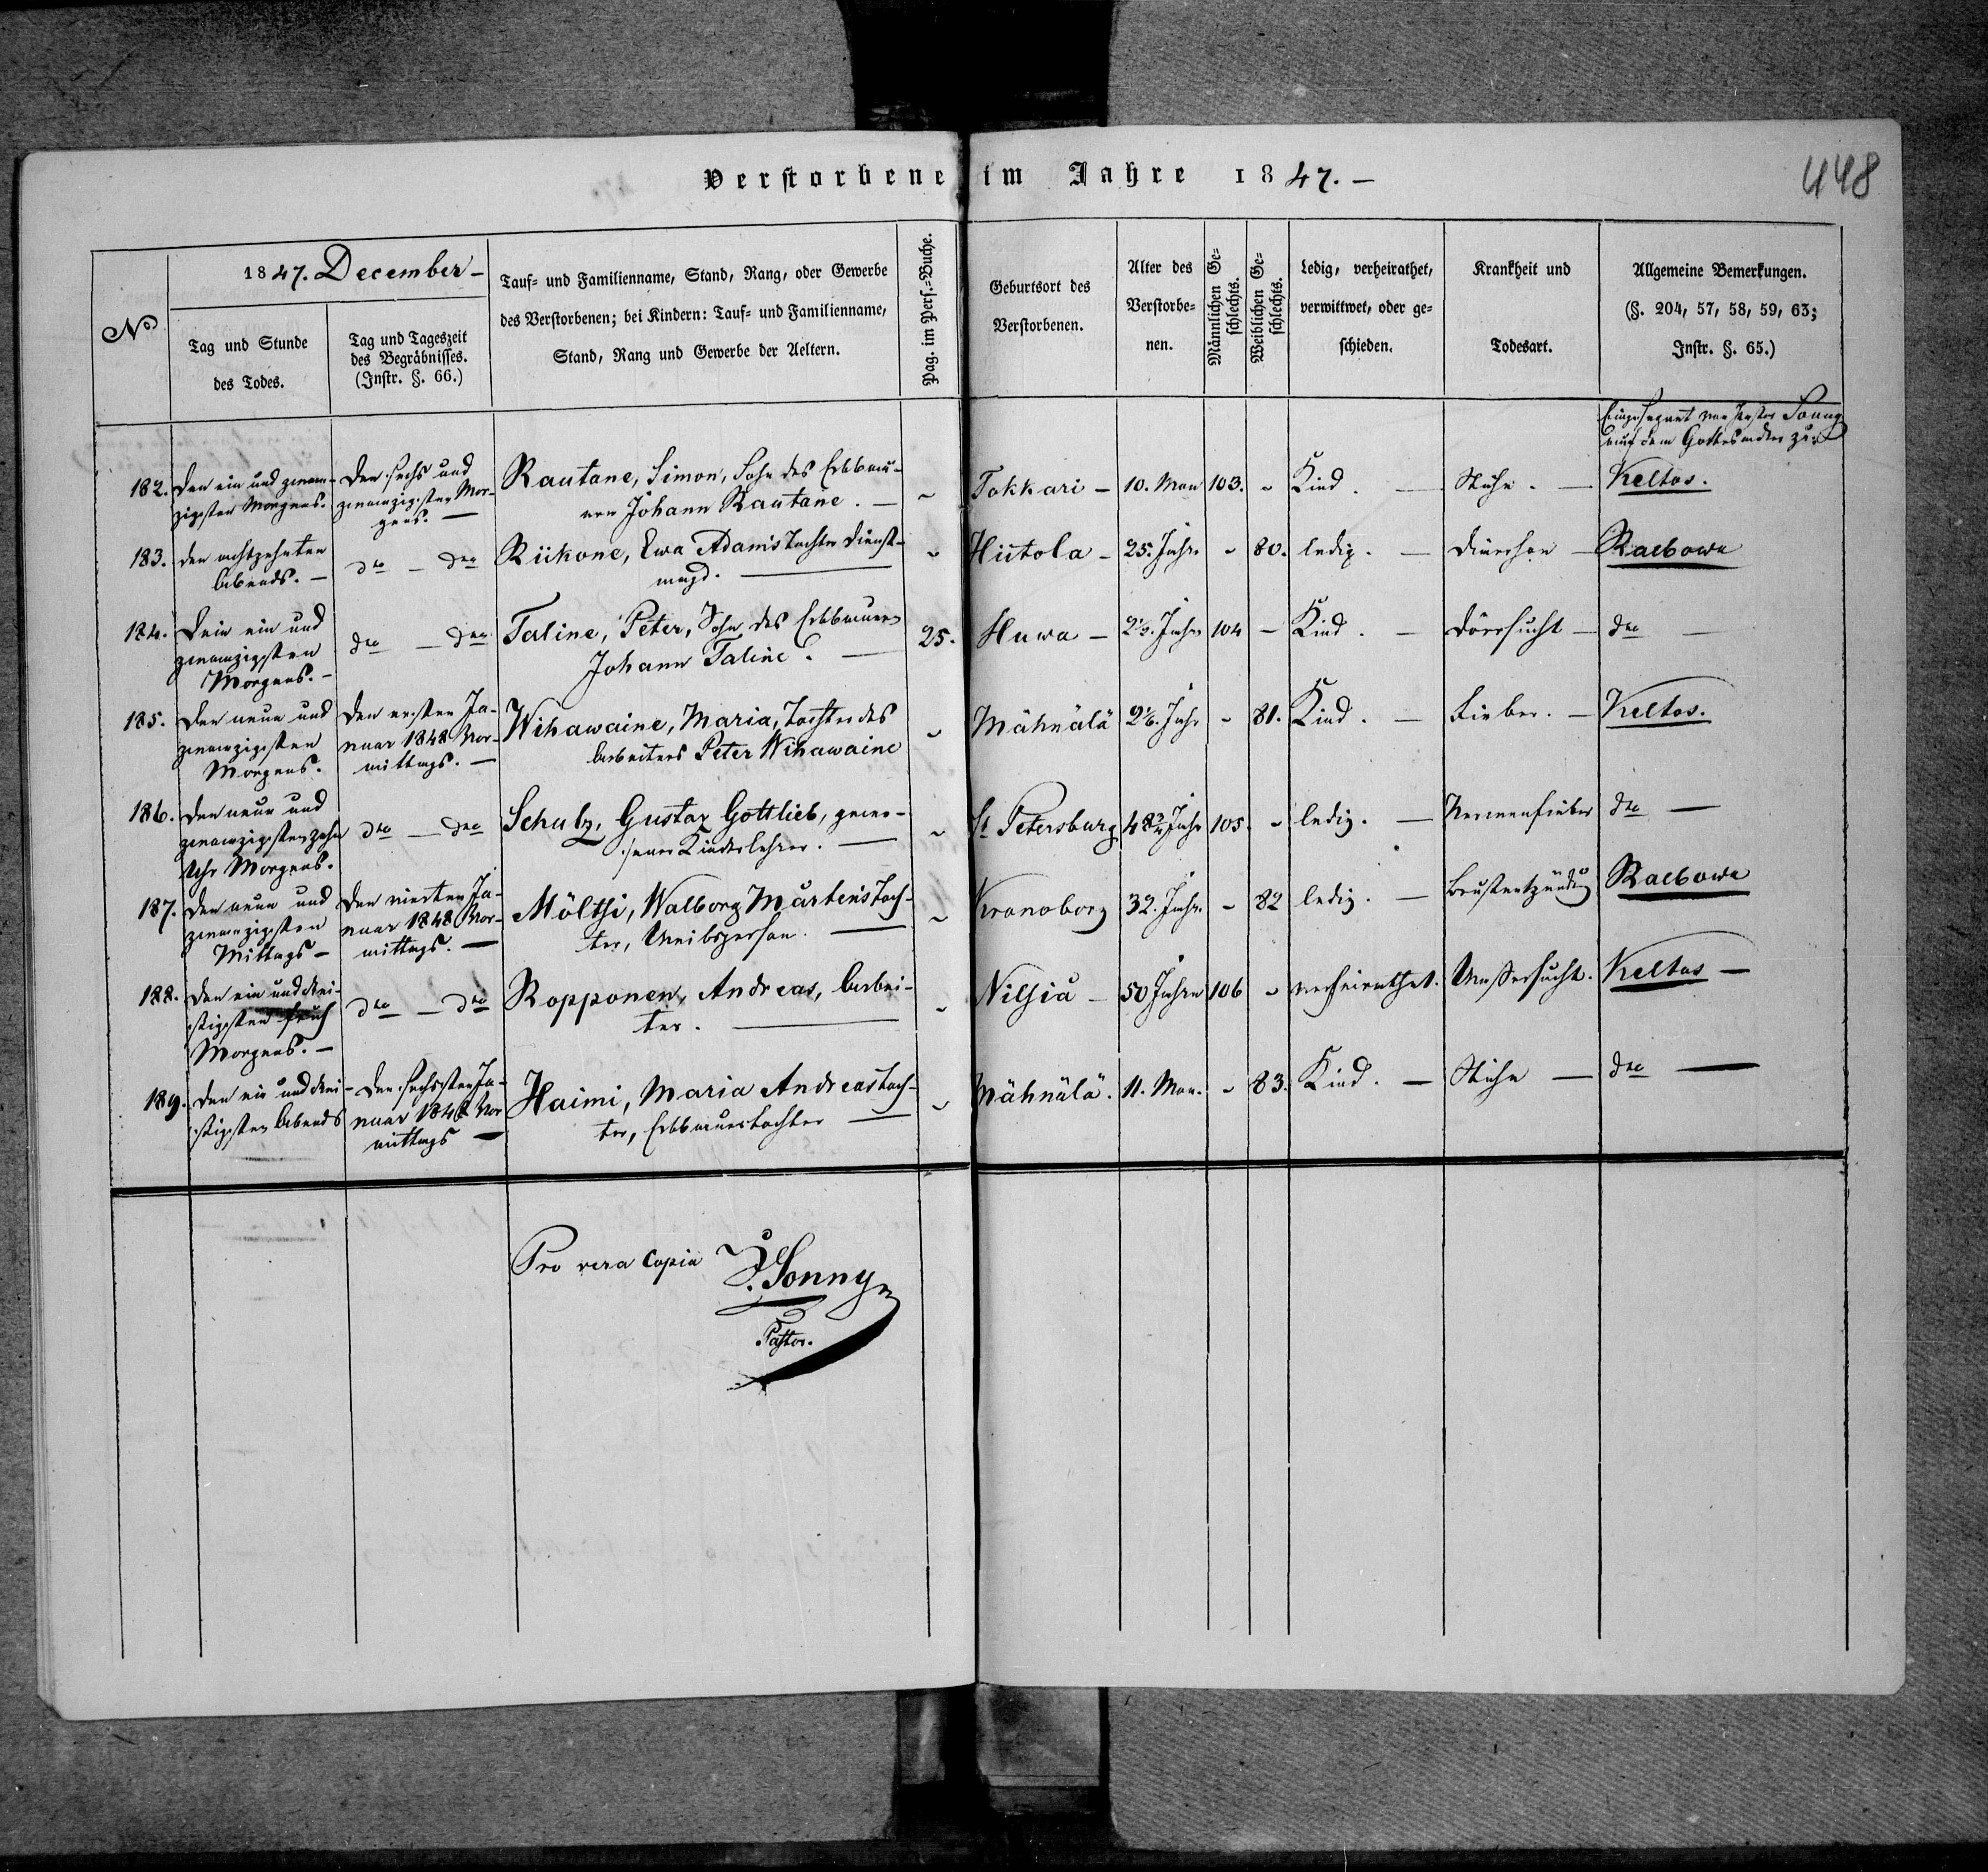 Verstorbene im Jahre 1847. —
448
No
1847. December —
Tag und Stunde
des Todes.
Tag und Tageszeit
des Begräbnisses.
(Instr. §. 66.)
Tauf- und Familienname, Stand, Rang, oder Gewerbe
des Verstorbenen; bei Kindern: Tauf- und Familienname,
Stand, Rang und Gewerbe der Aeltern.
Pag. im Pers.-Buche.
Geburtsort des
Verstorbenen.
Alter des
Verstorbe-
nen.
Männlichen Ge-
schlechts.
Weiblichen Ge-
schlechts.
Ledig, verheirathet,
verwittwet, oder ge-
schieden.
Krankheit und
Todesart.
Allgemeine Bemerkungen.
(§. 204, 57, 58, 59, 63;
Instr. §. 65.)
Eingesegnet von Pastor Sonny
auf dem Gottesacker zu:
182. Den ein und zwan-
zigsten Morgens.
Den sechs und
zwanzigsten Mor-
gens. —
Rautane, Simon, Sohn des Erbbau-
ern Johann Rautane. —
Tokkari — 10. Mon 103. Kind. — — Keltos.
183. den achtzehnten
Abends. —
dto — dto
Riikone, Ewa Adams Tochter Dienst-
magd. —
Hiitola — 25. Jahr 80. ledig. — Diarrhoe — Raebowa
184. Den ein und
zwanzigsten
Morgens. —
dto — dto
Taline, Peter, Sohn des Erbbauern
Johann Taline. —
25. Huwa — Jahr 104 — Kind. — Dörrsucht — dto —
185. Den neun und
zwanzigsten
Morgens.
Den ersten Ja-
nuar 1848 Vor-
mittags. —
Wihawaine, Maria, Tochter des
Arbeiters Peter Wihawaine
Mähnälä Jahr 81. Kind. — Fieber. — Keltos.
186. Den neun und
zwanzigsten zehn
Uhr Morgens.
dto — dto
Schulz, Gustav Gottlieb, gewe-
sener Kinderlehrer. —
St Petersburg 48¾ Jahr 105. ledig. — Nervenfieber dto —
187. Den neun und
zwanzigsten
Mittags —
Den vierten Ja-
nuar 1848 Vor-
mittags. —
Möltsi, Walborg Mårtens Toch-
ter, Weibsperson. —
Kronoborg 32. Jahr. 82 ledig. — Brustentzündung Raebowa
188. Den ein und drei-
sigsten früh
Morgens. —
dto — dto
Ropponen, Andreas, Arbei-
ter. —
Nilsiä — 50 Jahre 106 verheirathet. Wassersucht. Keltos —
189. Den ein und drei-
sigsten Abends
Den sechsten Ja-
nuar 1848 Vor
mittags —
Haimi, Maria Andreas Toch-
ter, Erbbauerstochter —
Mähnälä. 11. Mon. 83. Kind. — — dto —
Pro vera Copia J. Sonny
Pastor.